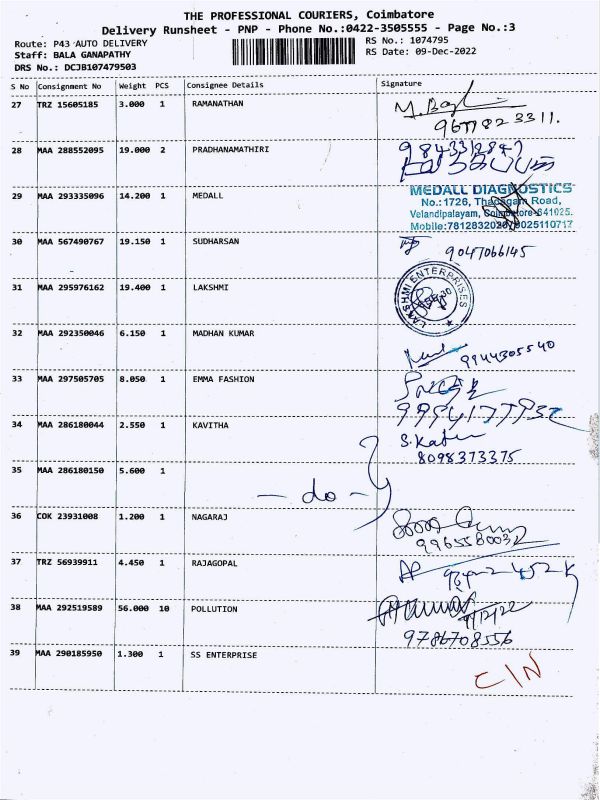 THE PROFESSIONAL COURIERS, Coimbatore
Delivery Runsheet - PNP - Phone No.:0422-3505555 - Page No.:3
Route: P43 AUTO DELIVERY
RS No.: 1074795
Staff: BALA GANAPATHY
RS Date: 09-Dec-2022
DRS No.: DCJB107479503
S No Consignment No Weight PCS Consignee Details Signature
27 TRZ 15605185 3.000 1 RAMANATHAN
28 MAA 288552095 19.000 2 PRADHANAMATHIRI
29 MAA 293335096 14.200 1 MEDALL
MEDALL DIAGNOSTICS
No.:1726, Thadagam Road,
Velandipalayam, Coimbatore-641025.
30 MAA 567490767 19.150 1 SUDHARSAN
9047066145
31 MAA 295976162 19.400 1 LAKSHMI
LAKSHMI ENTERPRISES
32 MAA 292350046 6.150 1 MADHAN KUMAR
9944305540
33 MAA 297505705 8.050 1 EMMA FASHION
34 MAA 286180044 2.550 1 KAVITHA
8098373375
35 MAA 286180150 5.600 1
- do -
36 COK 23931008 1.200 1 NAGARAJ
37 TRZ 56939911 4.450 1 RAJAGOPAL
38 MAA 292519589 56.000 10 POLLUTION
9786708556
39 MAA 290185950 1.300 1 SS ENTERPRISE
C/N